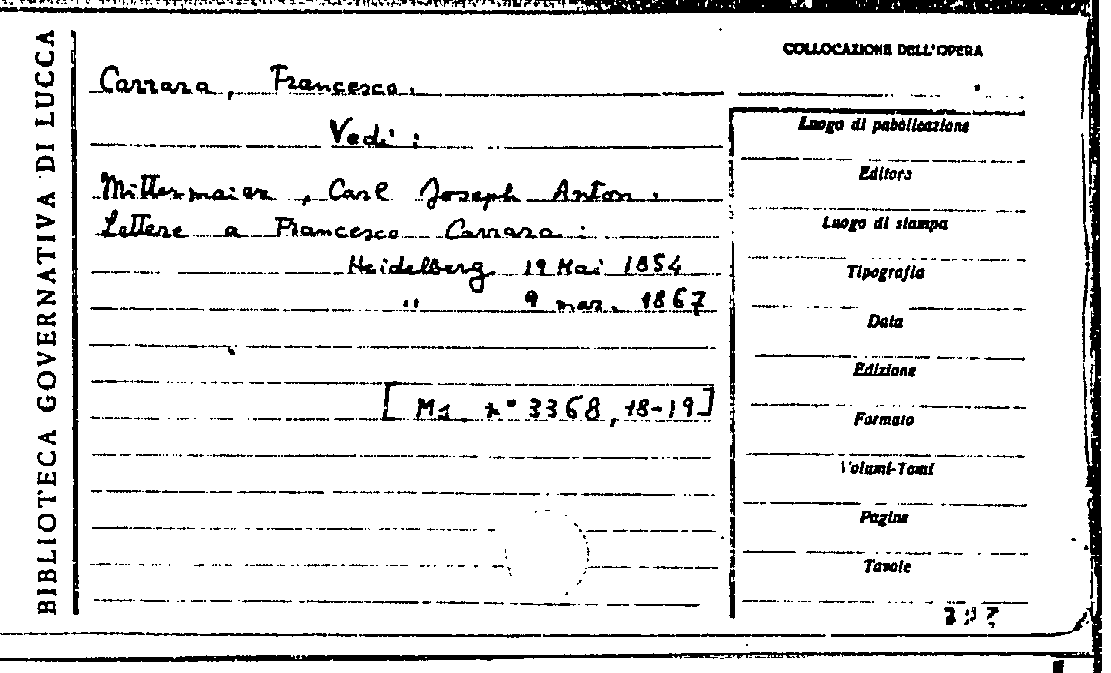 BIBLIOTECA GOVERNATIVA DI LUCCA
Carrara, Francesco.
Vedi:
Mittermaier, Carl Joseph Anton.
Lettere a Francesco Carrara:
Heidelberg 19 Mai 1854
" 9 mar. 1867
[Ms. n° 3368, 18-19]
COLLOCAZIONE DELL'OPERA
Luogo di pubblicazione
Editore
Luogo di stampa
Tipografia
Data
Edizione
Formato
Volumi-Tomi
Pagine
Tavole